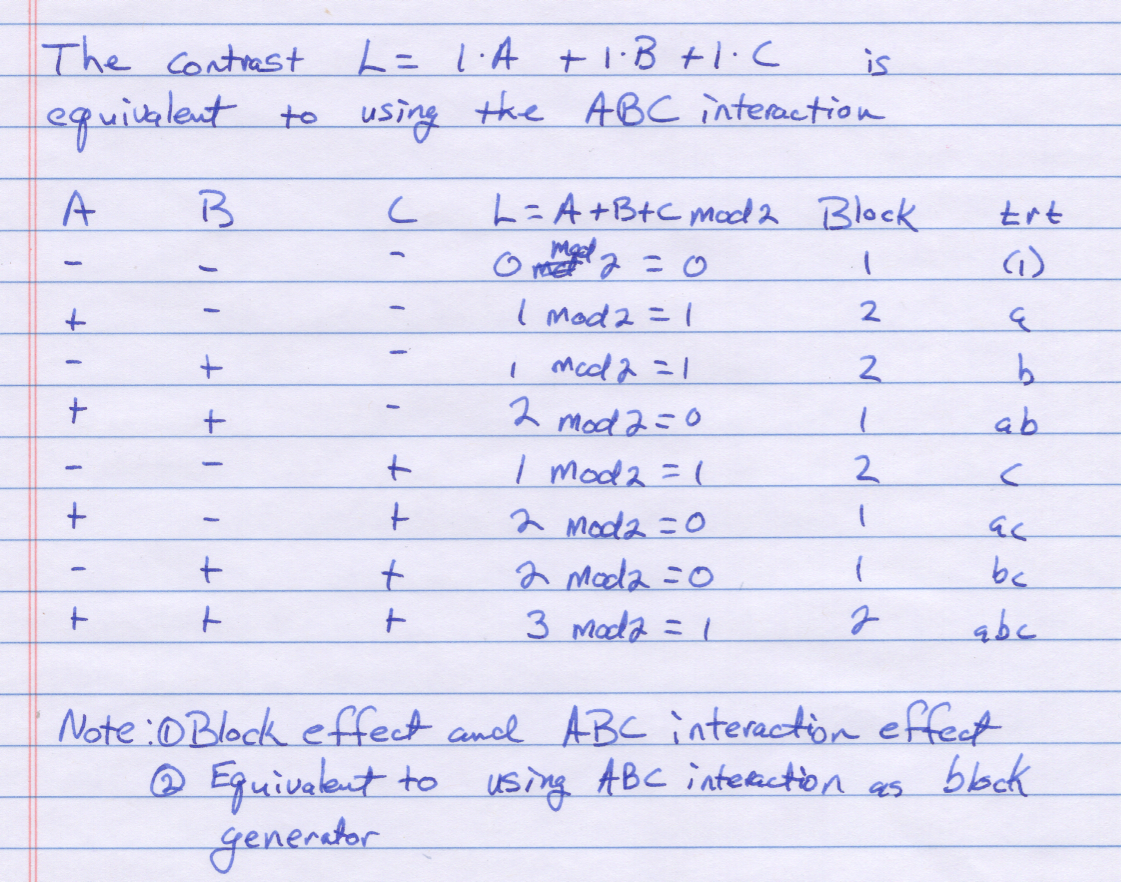 The contrast L = 1·A + 1·B + 1·C is
equivalent to using the ABC interaction
A B C L = A+B+C mod 2 Block trt
- - - 0 mod 2 = 0 1 (1)
+ - - 1 mod 2 = 1 2 a
- + - 1 mod 2 = 1 2 b
+ + - 2 mod 2 = 0 1 ab
- - + 1 mod 2 = 1 2 c
+ - + 2 mod 2 = 0 1 ac
- + + 2 mod 2 = 0 1 bc
+ + + 3 mod 2 = 1 2 abc
Note: ① Block effect and ABC interaction effect
② Equivalent to using ABC interaction as block
generator